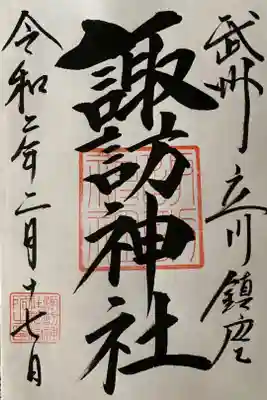 武州立川鎮座
諏訪神社
令和二年二月十七日